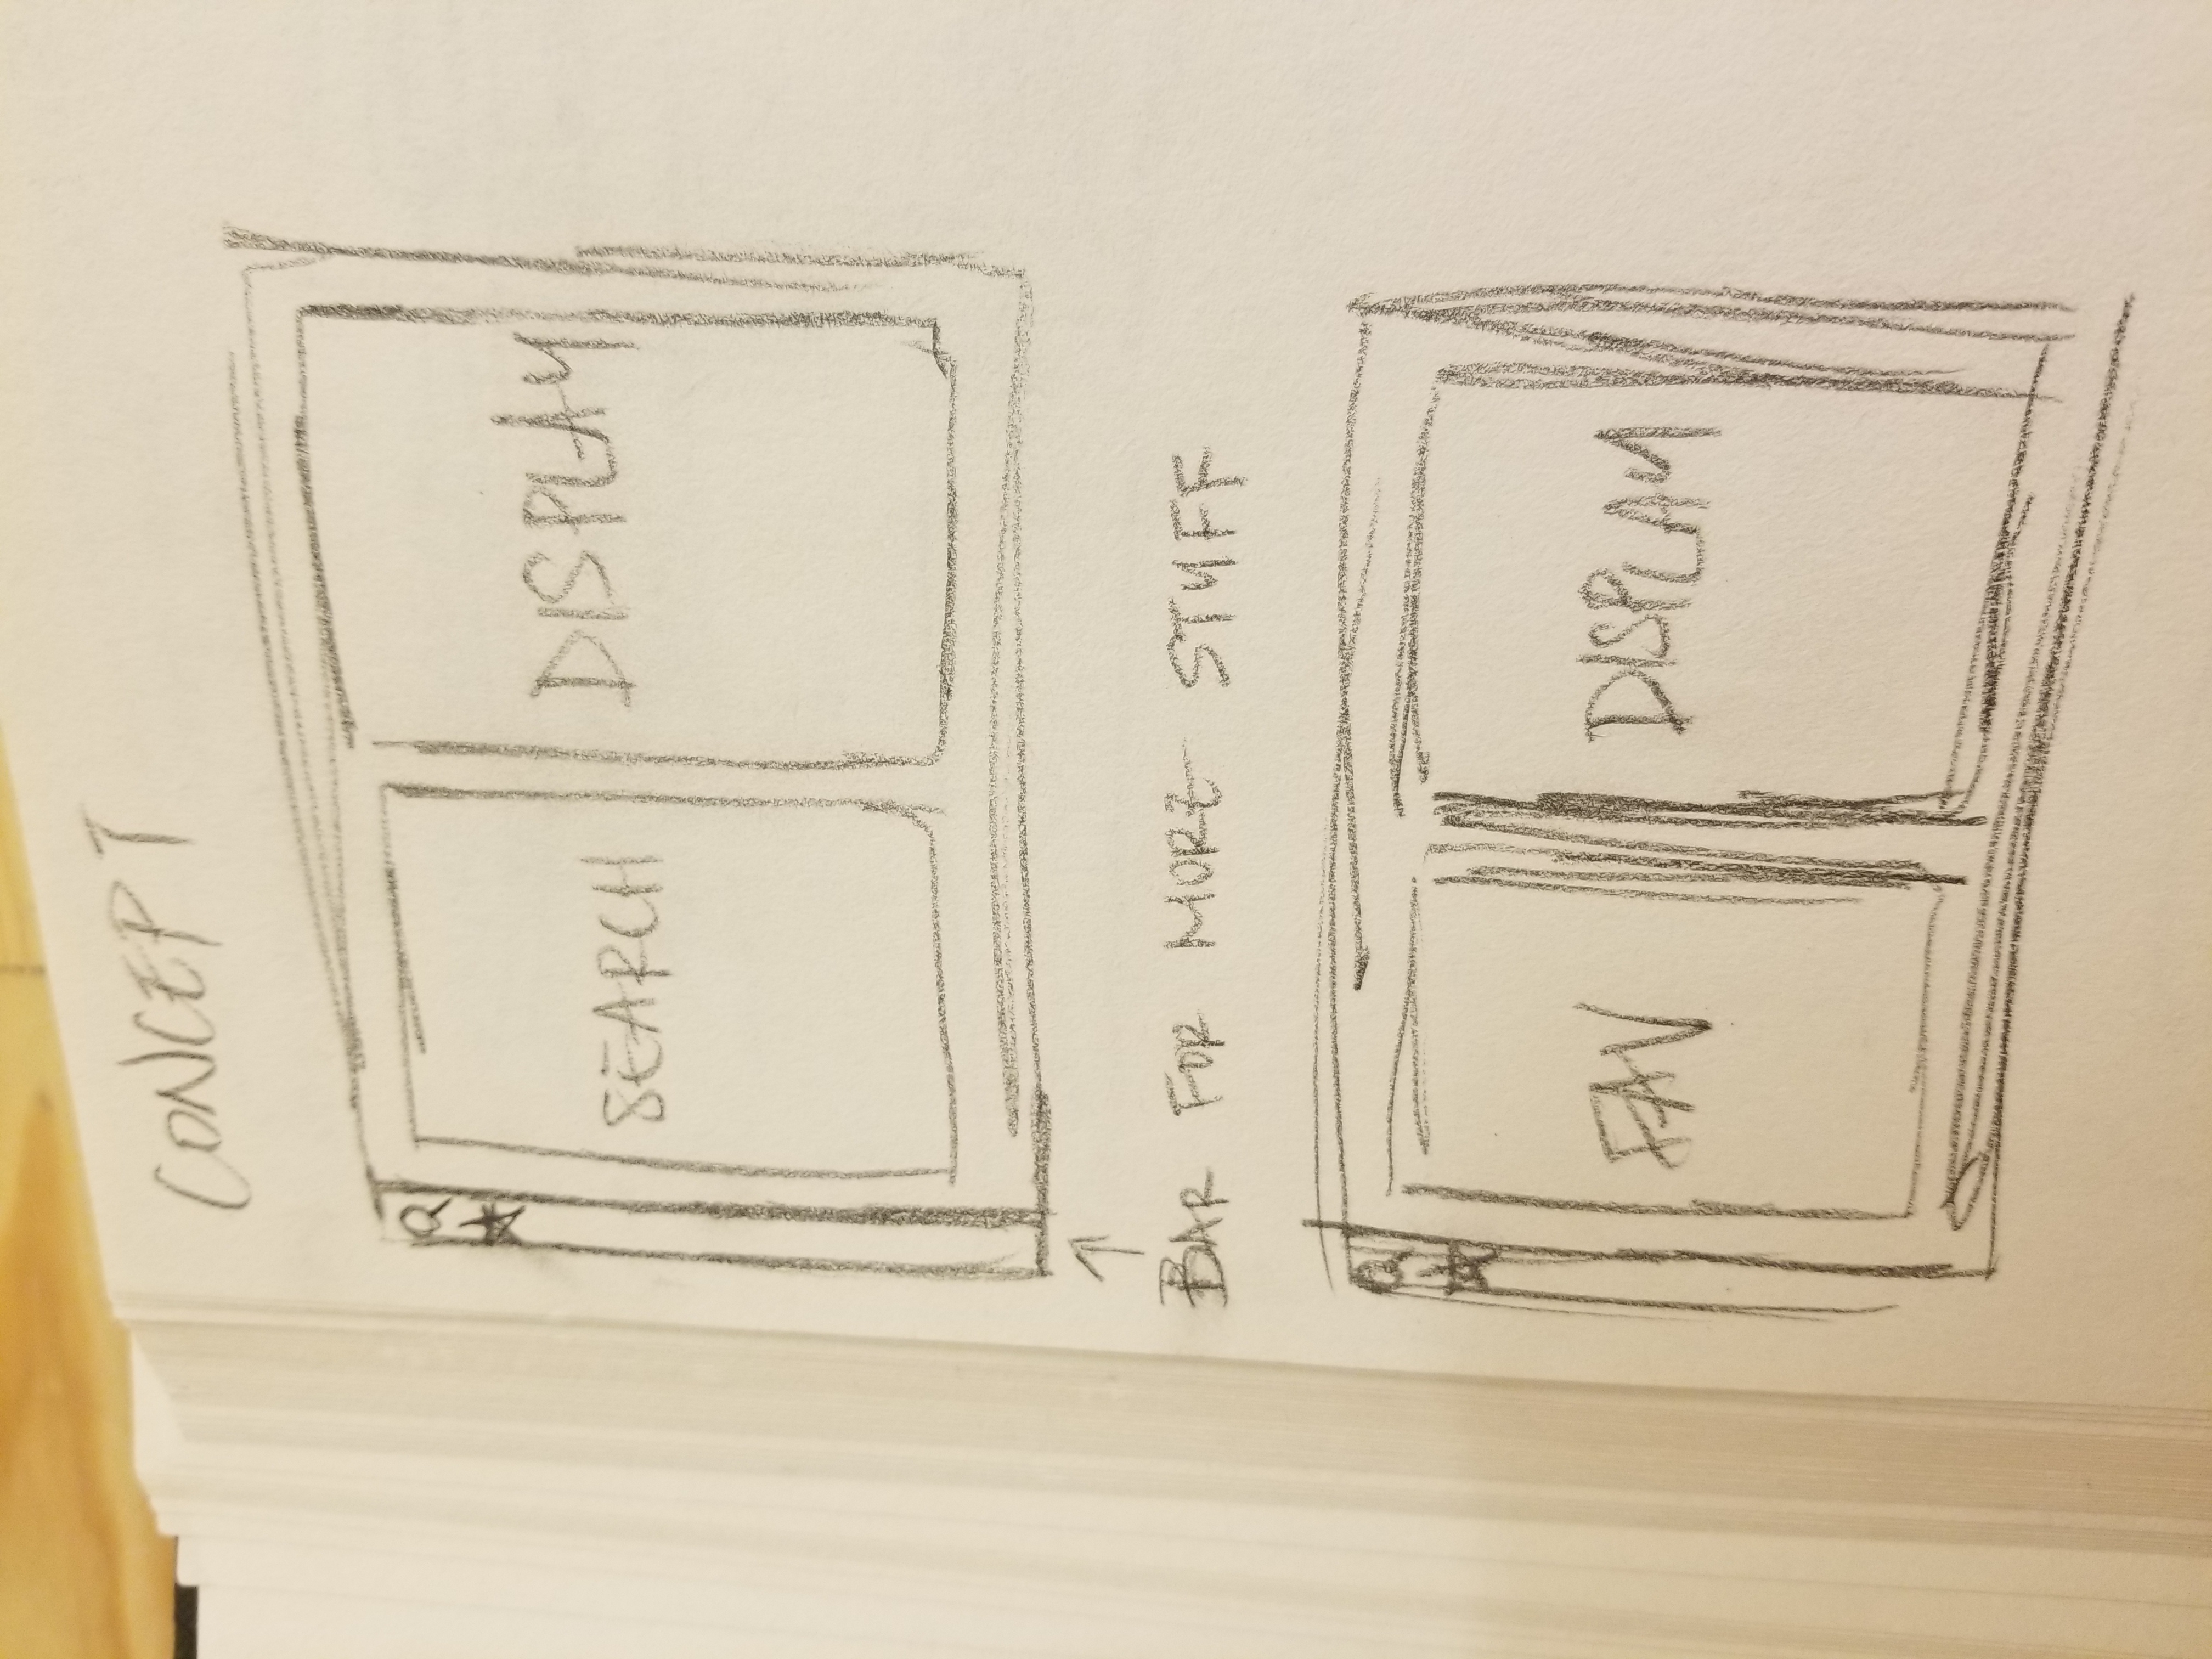 CONCEPT
SEARCH
DISPLAY
BAR FOR MORE STUFF
FAV
DISPLAY